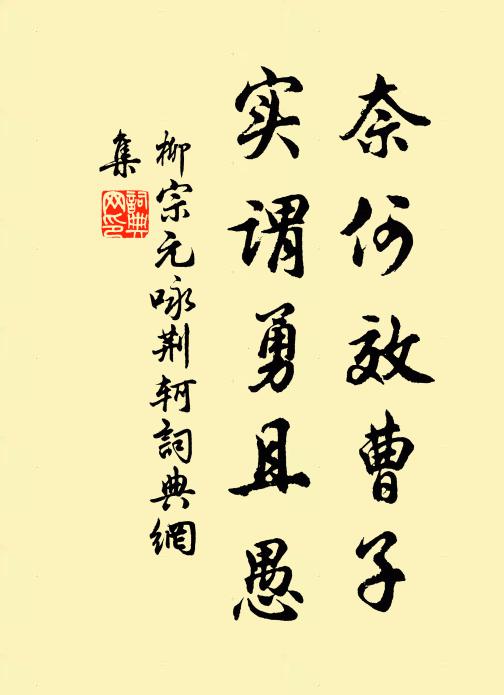 奈何效曹子
实谓勇且愚
柳宗元咏荆轲词典網
集
詞典网印